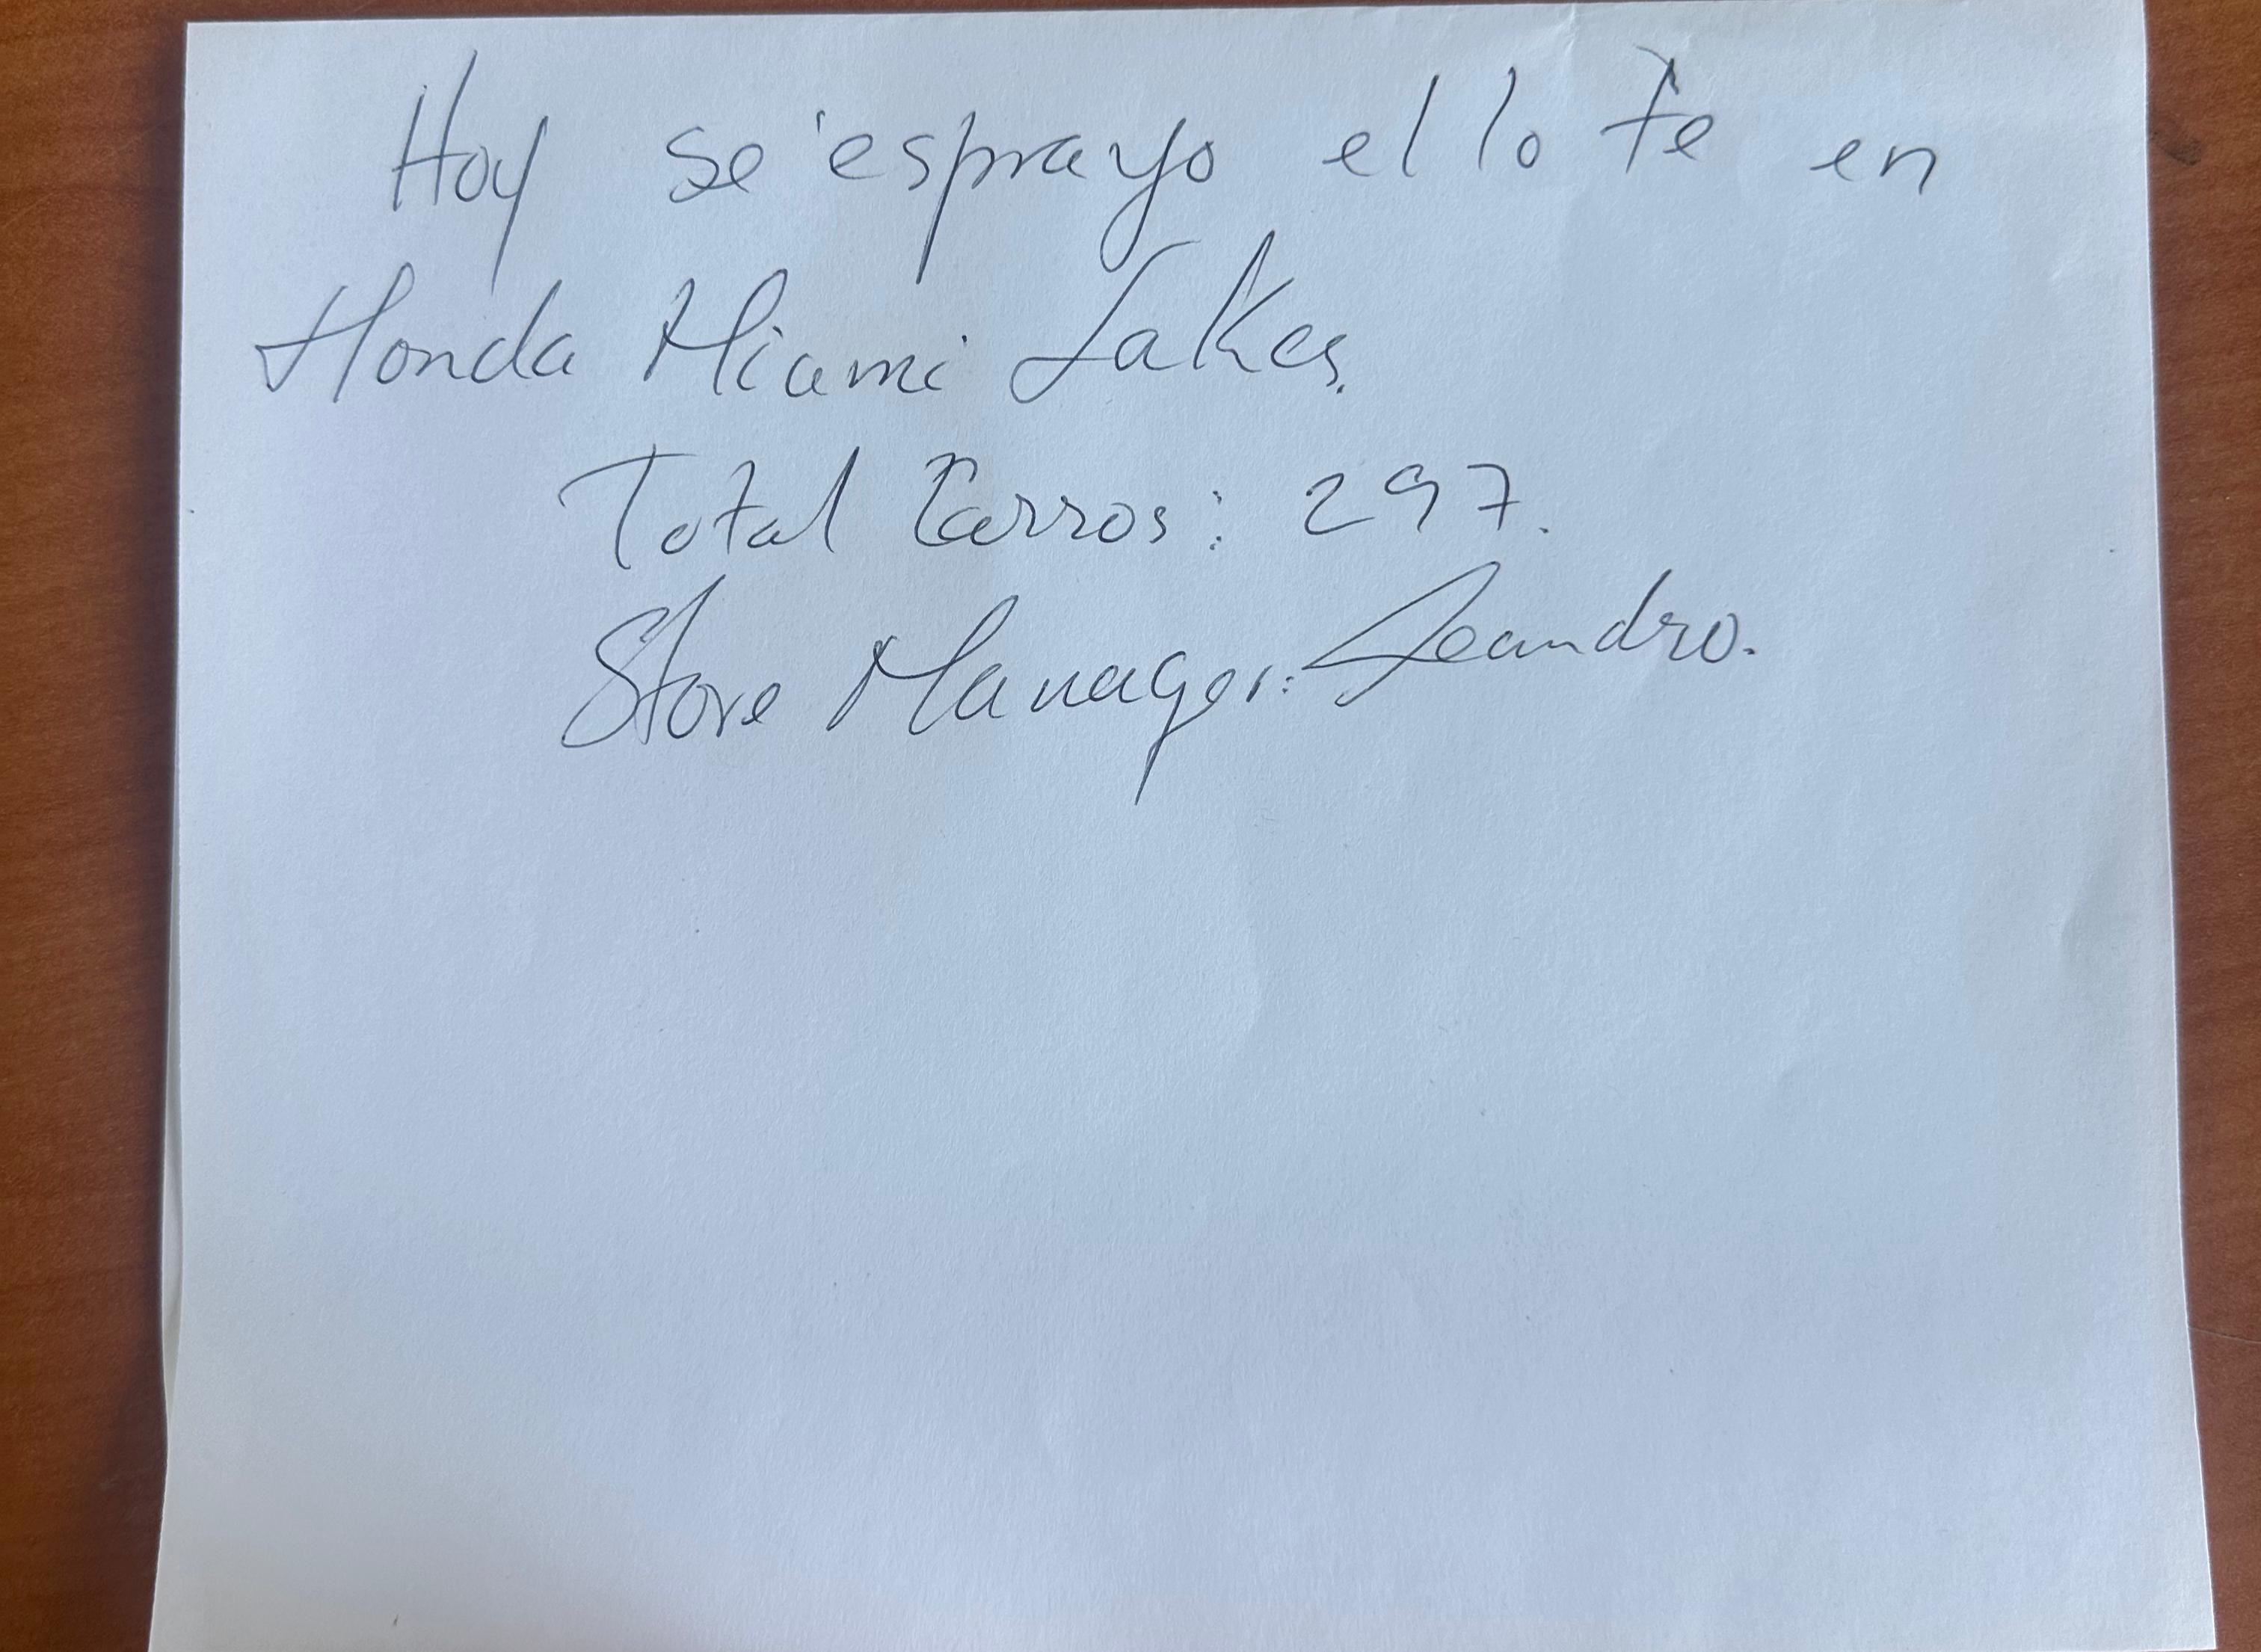 Hoy se esprayo el lote en
Honda Miami Lakes.
Total Carros: 297.
Store Manager: Leandro.